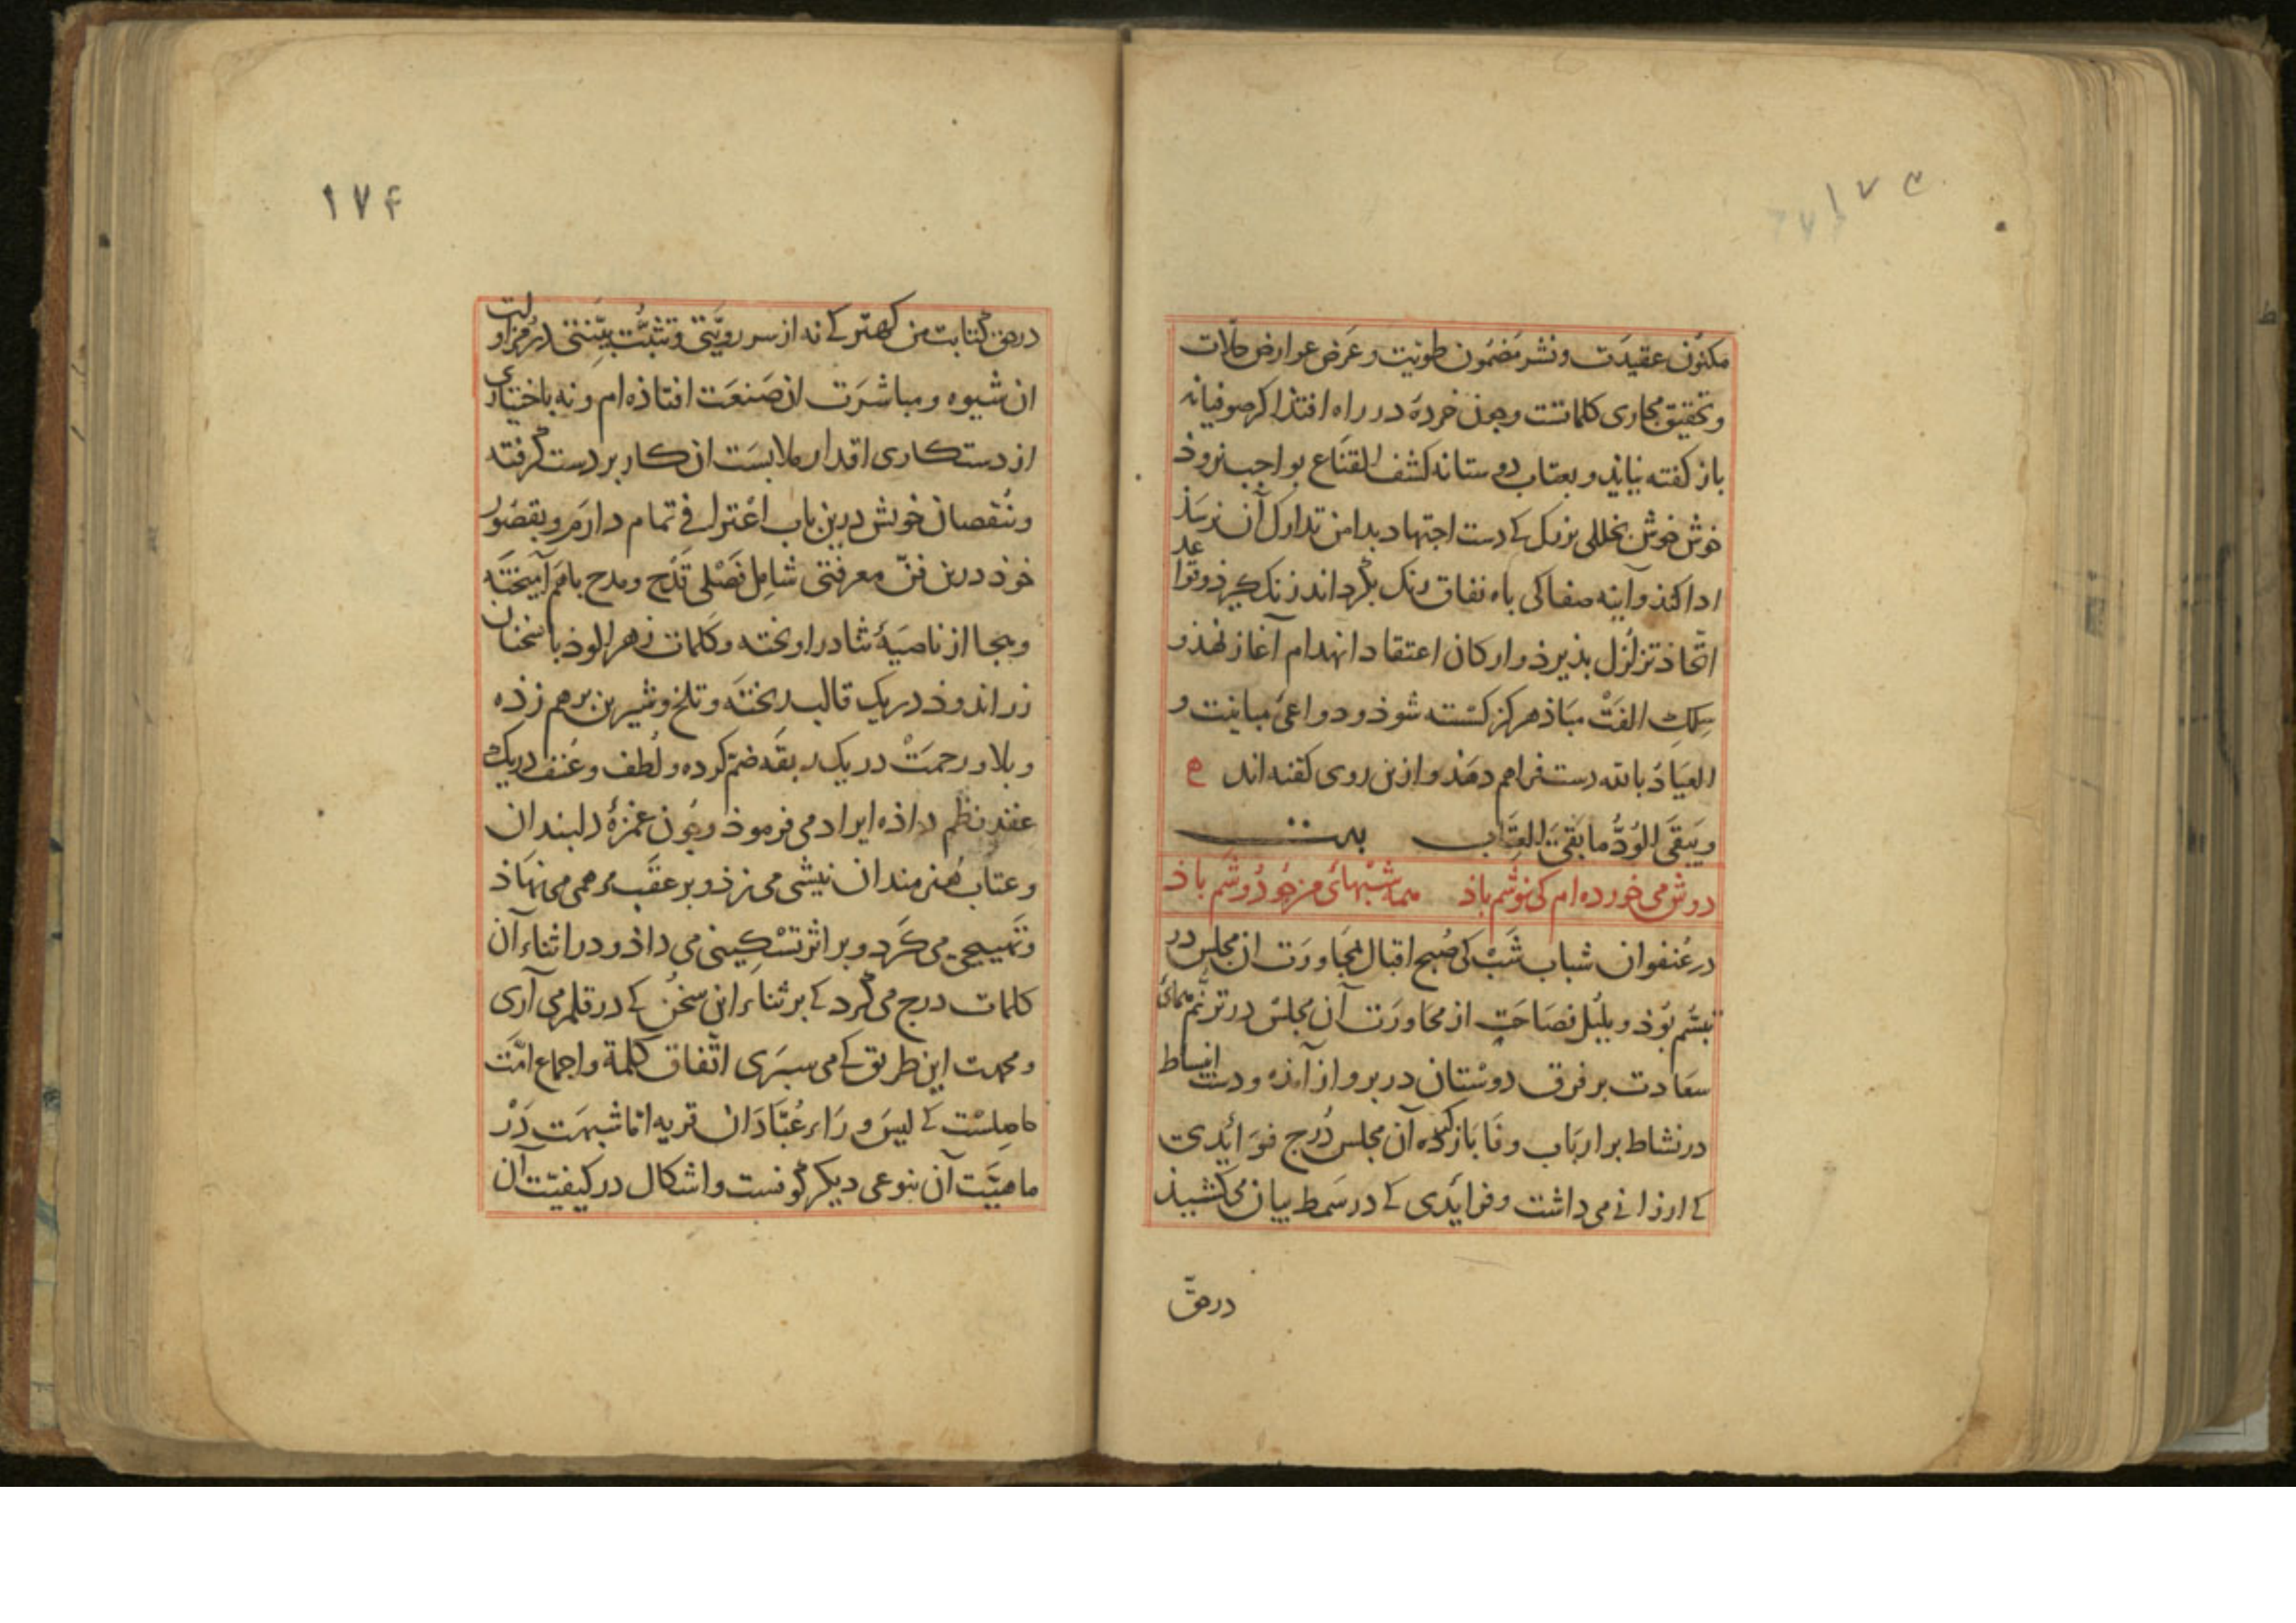 ۱۷۳
مکنون عقیدت ونشر مضمون طویت وعرض عوارض حالات
وتحقیق مجاری کلماتست وچون خردهٔ در راه افتذ اکر صوفیانه
باز کفته نیاید و بعتاب دوستانه کشف القناع بواجب نروذ
خوش خوش بخللی بزرک کے دست اجتهاد بدامن تدارک آن نرسذ
ادا کند وآینه صفا کی باه نفاق رنک بگرداند زنک کیرذ وقواعد
اتّحاذ تزلزل بذیرذ وارکان اعتقاد انهدام آغاز نهذ و
سِلکِ الفَتْ مباذ هرکز کسسته شوذ ودواعیٔ مباینت و
العیاذُ بالله دست فراهم دهذ وازین روی کفته اند ع
ویَبقَی الوُدُّ ما بَقِیَ العِتَاب بیت
دوش می خورده ام کی نوشم باذ همه شبهائ من چو دوشم باذ
در عُنفوان شباب شَبْ کی صُبح اقبال بمجاورَت ان مجلس در
تبسّم بوُذ و بلبُل فصَاحَت از محاورَت آن مجلس در ترنّم همائ
سعَادت بر فرق دوستان در برواز آمذه ودست انبساط
در نشاط بر اربَاب وفَا بَاز کرده آن مجلس دُرج فوَائدی
کے ارزانے می داشت وفرایَدی کے در سَمط بیان می کشیذ
درحقّ
۱۷۴
درحقّ کتابت من کهتر کے نه از سر رویَّتی وتثبُّت بیّنتی در مزاولت
ان شیوه ومباشرَت ان صَنعَت افتاذه ام ونه باختیاری
از دستکاری اقدار ملابسَت ان کار بر دست گرفته
وبنُقصان خویش درین باب اعْترافے تمام دارم وبقصُور
خوذ درین فنّ معرفتی شامِل فصْلی قَدْح ومدح باهَم آمیختَه
وهجا از ناصیَهٔ ثنا دراویخته وکَلمات زهر الوذ با سخنان
زر اندوذ در یک قالب ریختَه وتلخ وشیرین برهم زذه
وبلا ورحمَتْ در یک ربقَه ضم کرده ولُطف وعُنف در یک
عقد نظم داذه ایراد می فرموذ وچون غمزهٔ دلبندان
وعتاب هُنر مندان نیشی می زذ وبر عقَب مرهمی می نهَاذ
وتَهییجی می کَرد وبر اثر تسْکِینی می داذ ودر اثناء آن
کلمات درج می کَرد کے بر ثناء این سخُن کے در قلم می آری
ومحمدت این طریق کے می سبَری اتّفاق کلمة واجماع امَّت
حاصلسْت کے لیسَ وَرَاء عُبَّادَان قریه امّا شبهَت دَرْ
ماهیَّت آن بنوعی دیکر کونست واشکال در کیفیّت آن